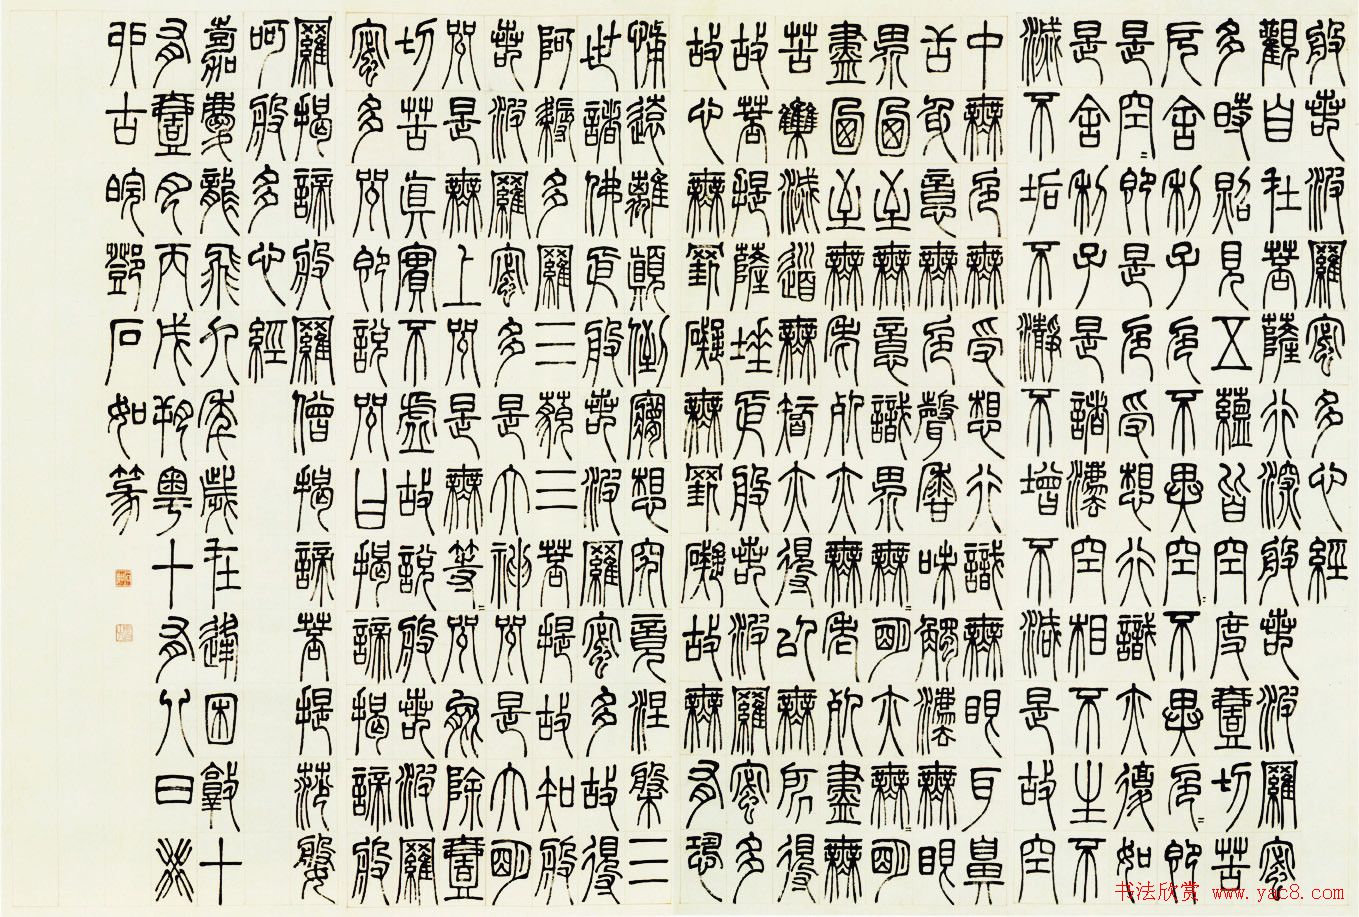 般若波羅蜜多心經
觀自在菩薩行深般若波羅蜜
多時照見五蘊皆空度壹切苦
厄舍利子色不異空=不異色=即
是空=即是色受想行識亦復如
是舍利子是諸法空相不生不
滅不垢不淨不增不減是故空
中無色無受想行識無眼耳鼻
舌身意無色聲香味觸法無眼
界乃至無意識界無=明亦無=明
盡乃至無老死亦無老死盡無
苦集滅道無智亦得以無所得
故菩提薩埵依般若波羅蜜多
故心無罣礙無罣礙故無有恐
怖遠離顛倒夢想究竟涅槃三
世諸佛依般若波羅蜜多故得
阿耨多羅三藐三菩提故知般
若波羅蜜多是大神咒是大明
咒是無上咒是無等=咒能除壹
切苦真實不虛故說般若波羅
蜜多咒即說咒曰揭諦揭諦般
羅揭諦般羅僧揭諦菩提莎婆
呵般多心經
嘉慶龍飛九年歲在逢困敦十
有壹月丙戌朔粵十有八日癸
卯古皖鄧石如篆
书法欣赏 www.yac8.com